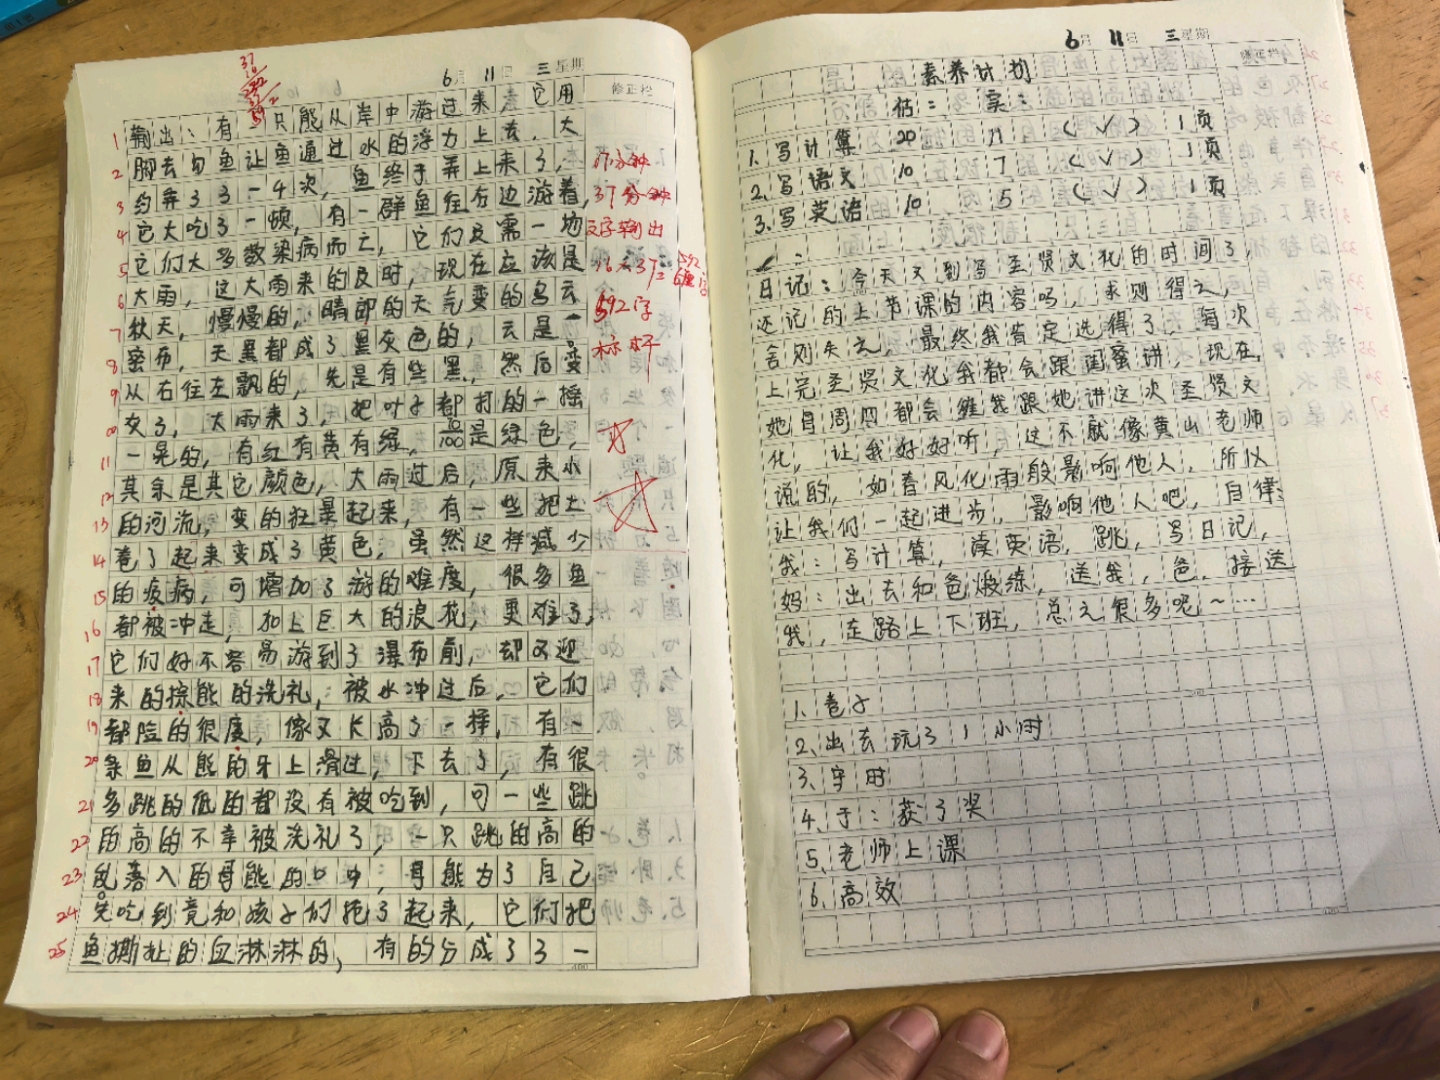 6月 11日 三 星期
修正栏
输出：有一只熊从岸中游过来，它用
脚去勾鱼让鱼通过水的浮力上去，大
约弄了3-4次，鱼终于弄上来了，
它大吃了一顿，有一群鱼往右边游着，
它们大多数染病而亡，它们只需一场
大雨，这大雨来的及时，现在应该是
秋天，慢慢的，晴朗的天气变的乌云
密布，天黑都成了黑灰色的，云是
从右往左飘的，先是有些黑，然后变
灰了，大雨来了，把叶子都打的一摇
一晃的，有红有黄有绿，是绿色，
其余是其它颜色，大雨过后，原来小
的河流，变的狂暴起来，有一些把土
卷了起来变成了黄色，虽然这样减少
的疫病，可增加了游的难度，很多鱼
都被冲走，加上巨大的浪花，更难了，
它们好不容易游到了瀑布前，却又迎
来的棕熊的洗礼，被水冲过后，它们
都险的很度，像又长高了一样，有一
条鱼从熊的牙上滑过，下去了，有很
多跳的低的都没有被吃到，可一些跳
的高的不幸被洗礼了，一只跳的高的
鱼落入的母熊的口中；母熊为了自己
先吃到竟和孩子们抢了起来，它们把
鱼撕扯的血淋淋的，有的分成了3-
17分钟
37分钟
文字输出
16×37=592
592字
标杆
6月 11日 三 星期
修正栏
素养计划
估： 实：
1.写计算 20 11 （√） 1页
2.写语文 10 7 （√） 1页
3.写英语 10 5 （√） 1页
日记：今天又到写圣贤文化的时间了，
还记的上节课的内容吗，求则得之，
舍则失之，最终我肯定选得了，每次
上完圣贤文化我都会跟闺蜜讲，现在，
她每周四都会缠我跟她讲这次圣贤文
化，让我好好听，这不就像黄山老师
说的，如春风化雨般影响他人，所以
让我们一起进步，影响他人吧，自律：
我：写计算，读英语，跳，写日记，
妈：出去和爸煅练，送我，爸，接送
我，走路上下班，总之很多呢～…
1、卷子
2、出去玩了1小时
3、守时
4、于：获了奖
5、老师上课
6、高效